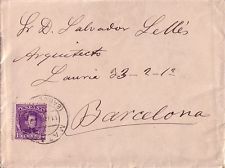 Sr D. Salvador Sellés
Arquitecto
Lauria 33-2-1º
Barcelona